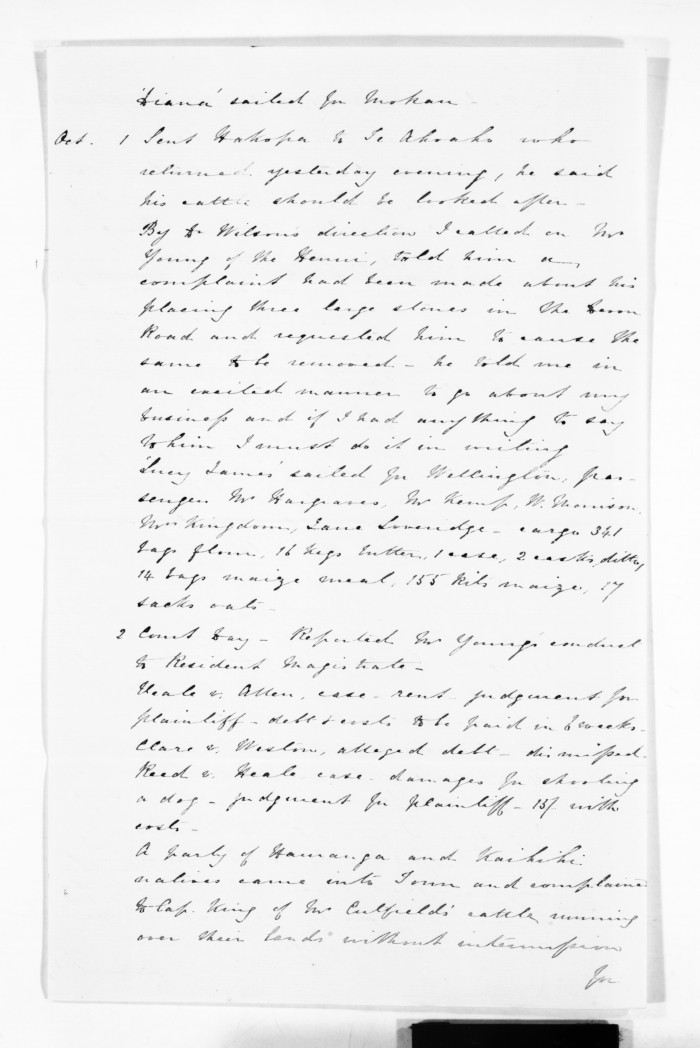 'Diana' sailed for Mokau -
Oct. 1 Sent Hakopa to Te Ahoaho who
returned yesterday evening, he said
his cattle should be looked after -
By Dr Wilson's direction I called on Mr
Young of the Henui, told him a
complaint had been made about his
placing three large stones in the Devon
Road and requested him to cause the
same to be removed - he told me in
an excited manner to go about my
business and if I had anything to say
to him I must do it in writing
'Lucy James' sailed for Wellington, pas-
sengers Mr Hargraves, Mr Kemp, W. Morrison,
Mrs Kingdom, Jane Loveridge - cargo 341
bags flour, 16 kegs butter, 1 case, 2 casks, ditto,
14 bags maize meal, 155 kits maize, 17
sacks oats -
2 Court Day - Reported Mr Young's conduct
to Resident Magistrate -
Heale v. Allen, case - rent - judgment for
plaintiff - debt & costs to be paid in 6 weeks -
Clare v. Weston, alleged debt - dismissed -
Reed v. Heale case - damages for shooting
a dog - judgment for plaintiff - 15/ with
costs -
A party of Hauranga and Kaihihi
natives came into Town and complained
to Cap. King of Mr Cutfield's cattle running
over their lands without intermission
for